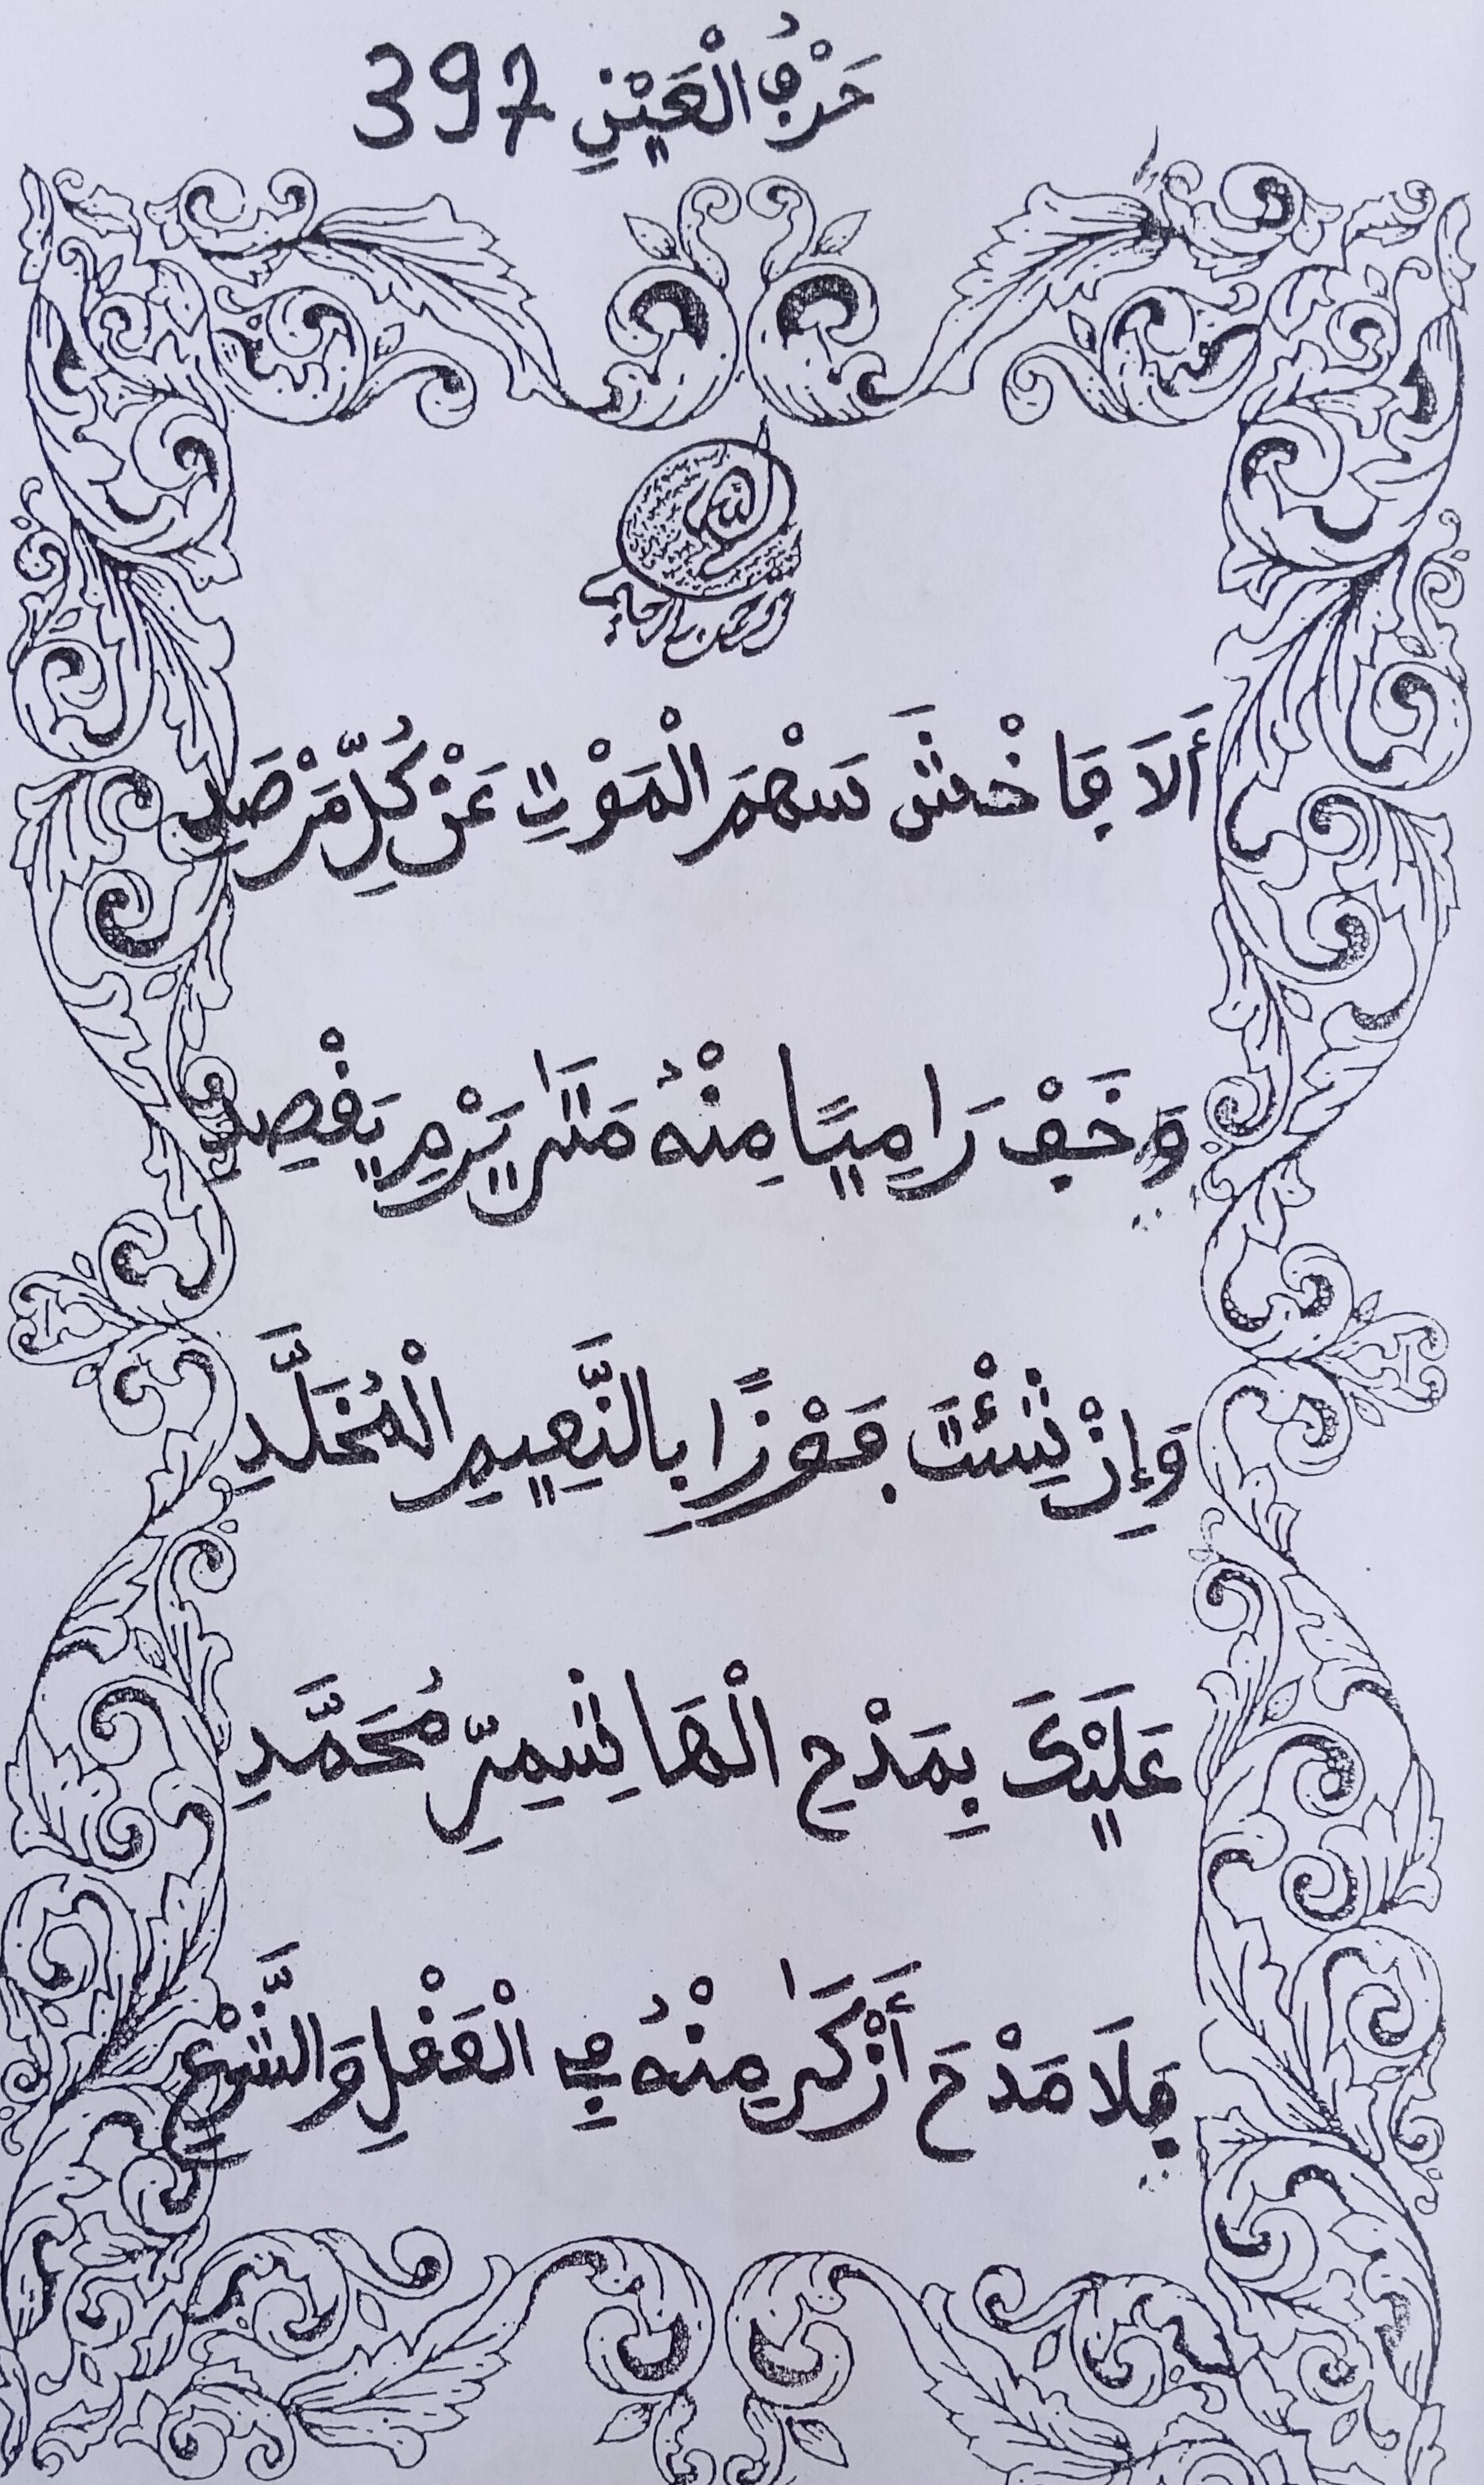 حَرْفُ الْعَيْنِ 397
أَلَا فَاخْشَ سَهْمَ الْمَوْتِ عَنْ كُلِّ مَرْصَدِ
وَخَفْ رَامِيًا مِنْهُ مَتَىٰ يَرْمِ يَقْصِدِ
وَإِنْ شِئْتَ فَوْزًا بِالنَّعِيمِ الْمُخَلَّدِ
عَلَيْكَ بِمَدْحِ الْهَاشِمِيِّ مُحَمَّدِ
فَلَا مَدْحَ أَزْكَىٰ مِنْهُ فِي الْعَقْلِ وَالشَّرْعِ